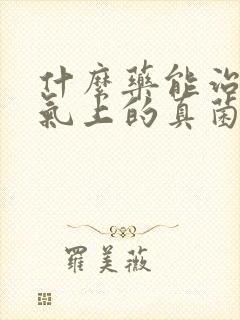 什麼藥能治
氣上的真菌
羅美薇